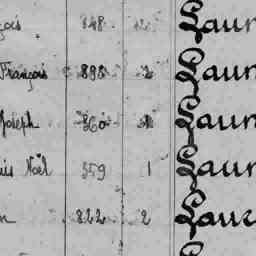 çois 848 Laur
François 898 2 Laur
Joseph 360 1 Laur
uis Noël 359 1 Laur
n 822 2 Laur